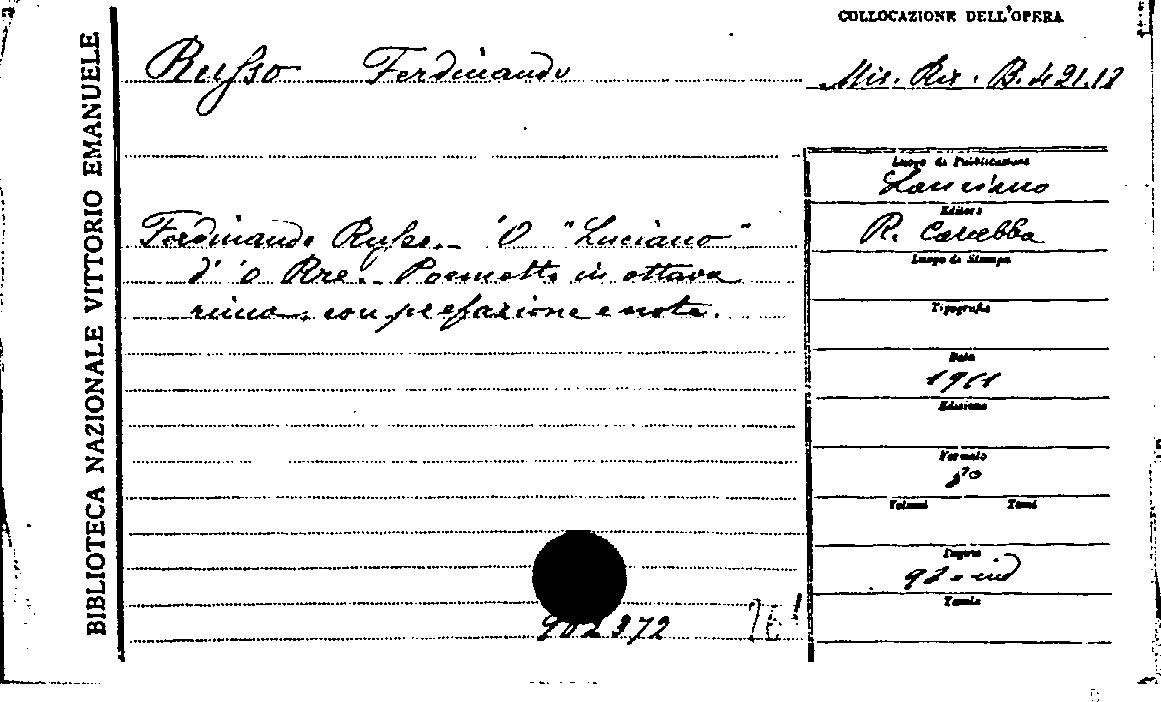 BIBLIOTECA NAZIONALE VITTORIO EMANUELE
COLLOCAZIONE DELL'OPERA
Russo Ferdinando
Mis. Ris. B. 421.18
Luogo di Pubblicazione
Lanciano
Editore
R. Carabba
Luogo di Stampa
Tipografia
Data
1911
Edizione
Formato
8º
Volumi Tomi
Pagine
Tavole
Ferdinando Russo. - 'O "Luciano"
d' 'o Rre. - Poemetto in ottava
rima, con prefazione e note.
902372